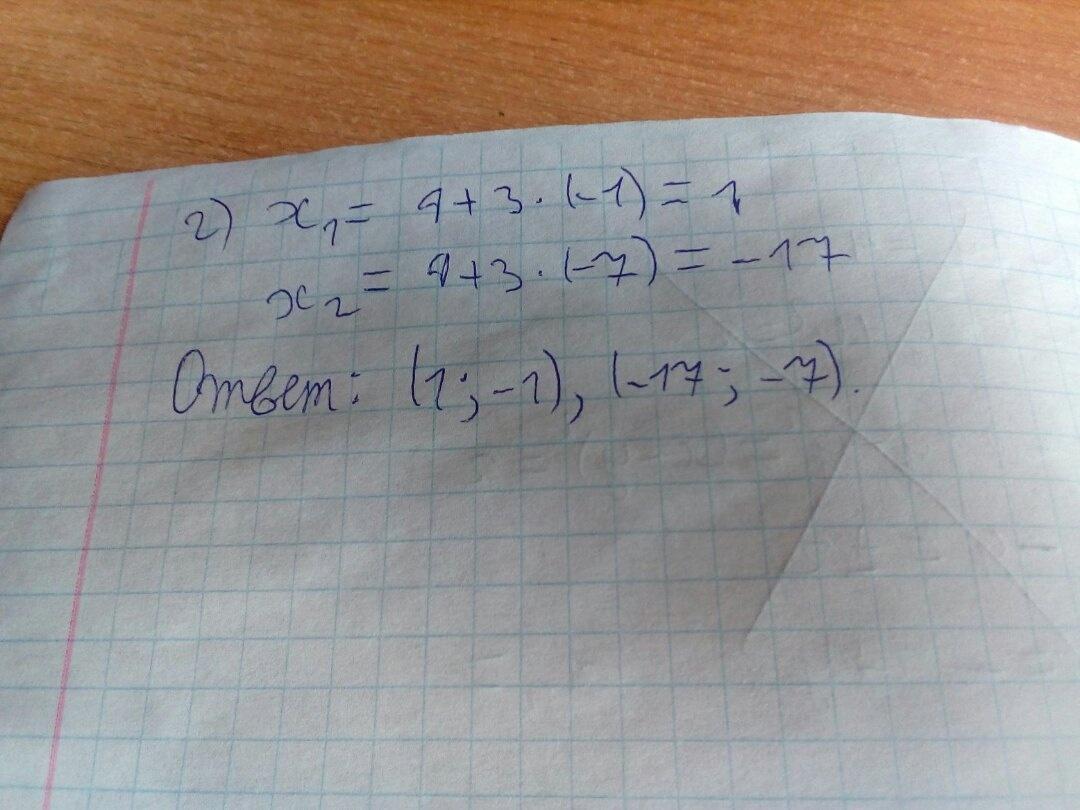 2) x₁ = 4 + 3 · (-1) = 1
x₂ = 4 + 3 · (-7) = -17
Ответ: (1; -1), (-17; -7).